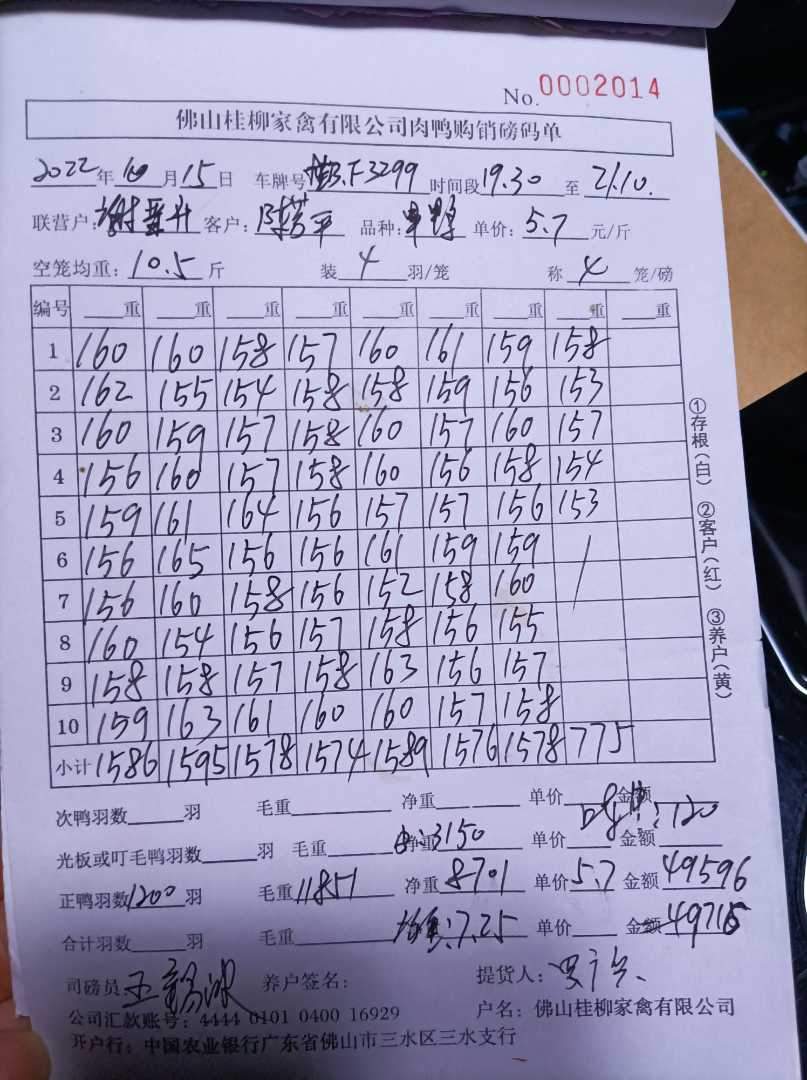 No. 0002014
佛山桂柳家禽有限公司肉鸭购销磅码单
2022年10月15日 车牌号 F3299 时间段19.30至21.10.
联营户: 升 客户: 陈芳平 品种: 单价: 5.7元/斤
空笼均重: 10.5斤 装4羽/笼 称4笼/磅
编号 重 重 重 重 重 重 重 重 重
1 160 160 158 157 160 161 159 158
2 162 155 154 158 158 159 156 153
3 160 159 157 158 160 157 160 157
4 156 160 157 158 160 156 158 154
5 159 161 164 156 157 157 156 153
6 156 165 156 156 161 159 159 /
7 156 160 158 156 152 158 160
8 160 154 156 157 158 156 155
9 158 158 157 158 163 156 157
10 159 163 161 160 160 157 158
小计 1586 1595 1578 1574 1589 1576 1578 775
①存根(白) ②客户(红) ③养户(黄)
次鸭羽数 羽 毛重 净重 单价 金额 : 120
光板或叮毛鸭羽数 羽 毛重 净重 3150 单价 金额
正鸭羽数1200羽 毛重11851 净重8701 单价5.7 金额49596
合计羽数 羽 毛重 均重:7.25 单价 金额49716
司磅员: 王 养户签名: 提货人:
公司汇款账号: 4444 0101 0400 16929 户名: 佛山桂柳家禽有限公司
开户行: 中国农业银行广东省佛山市三水区三水支行